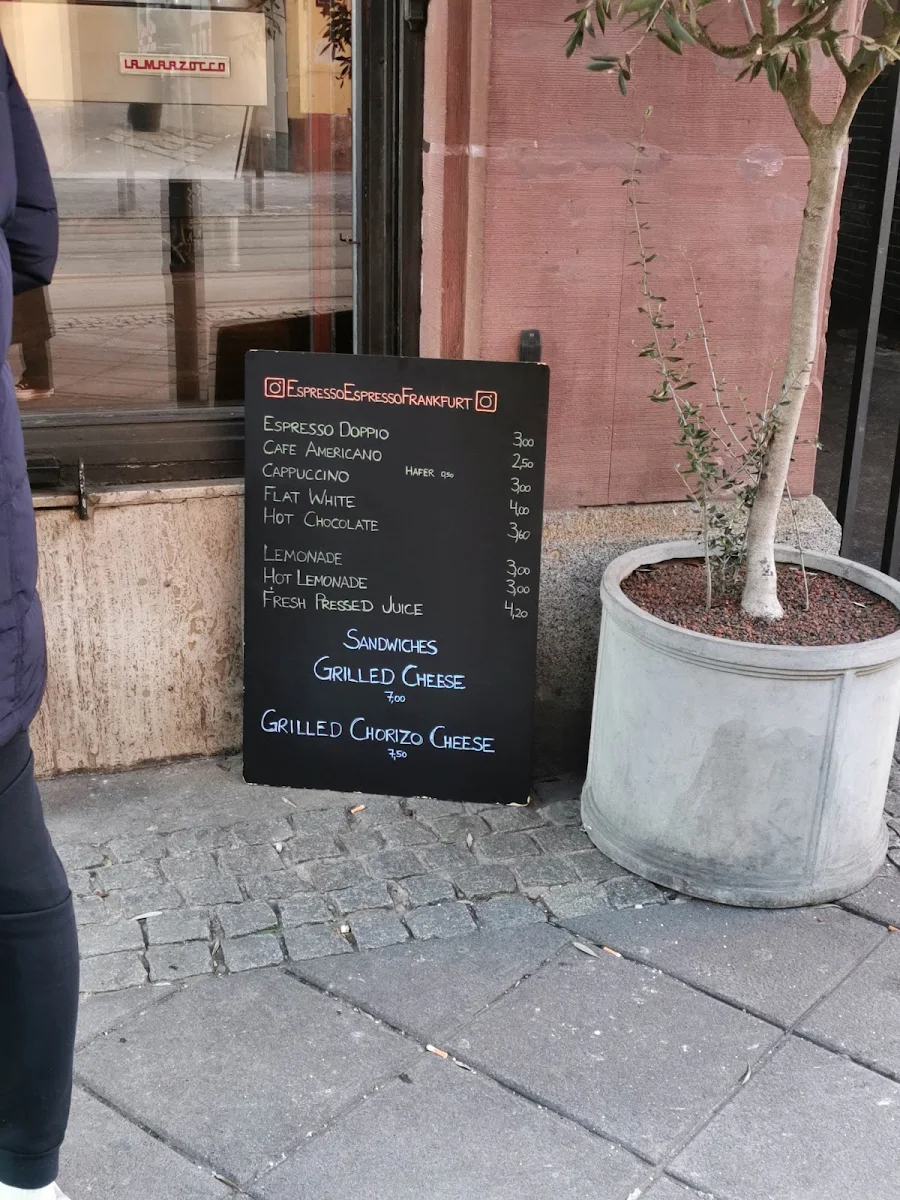 LA MARZOCCO
ESPRESSOESPRESSOFRANKFURT
ESPRESSO DOPPIO 3,00
CAFE AMERICANO 2,50
CAPPUCCINO HAFER 0,50 3,00
FLAT WHITE 4,00
HOT CHOCOLATE 3,60
LEMONADE 3,00
HOT LEMONADE 3,00
FRESH PRESSED JUICE 4,20
SANDWICHES
GRILLED CHEESE
7,00
GRILLED CHORIZO CHEESE
7,50